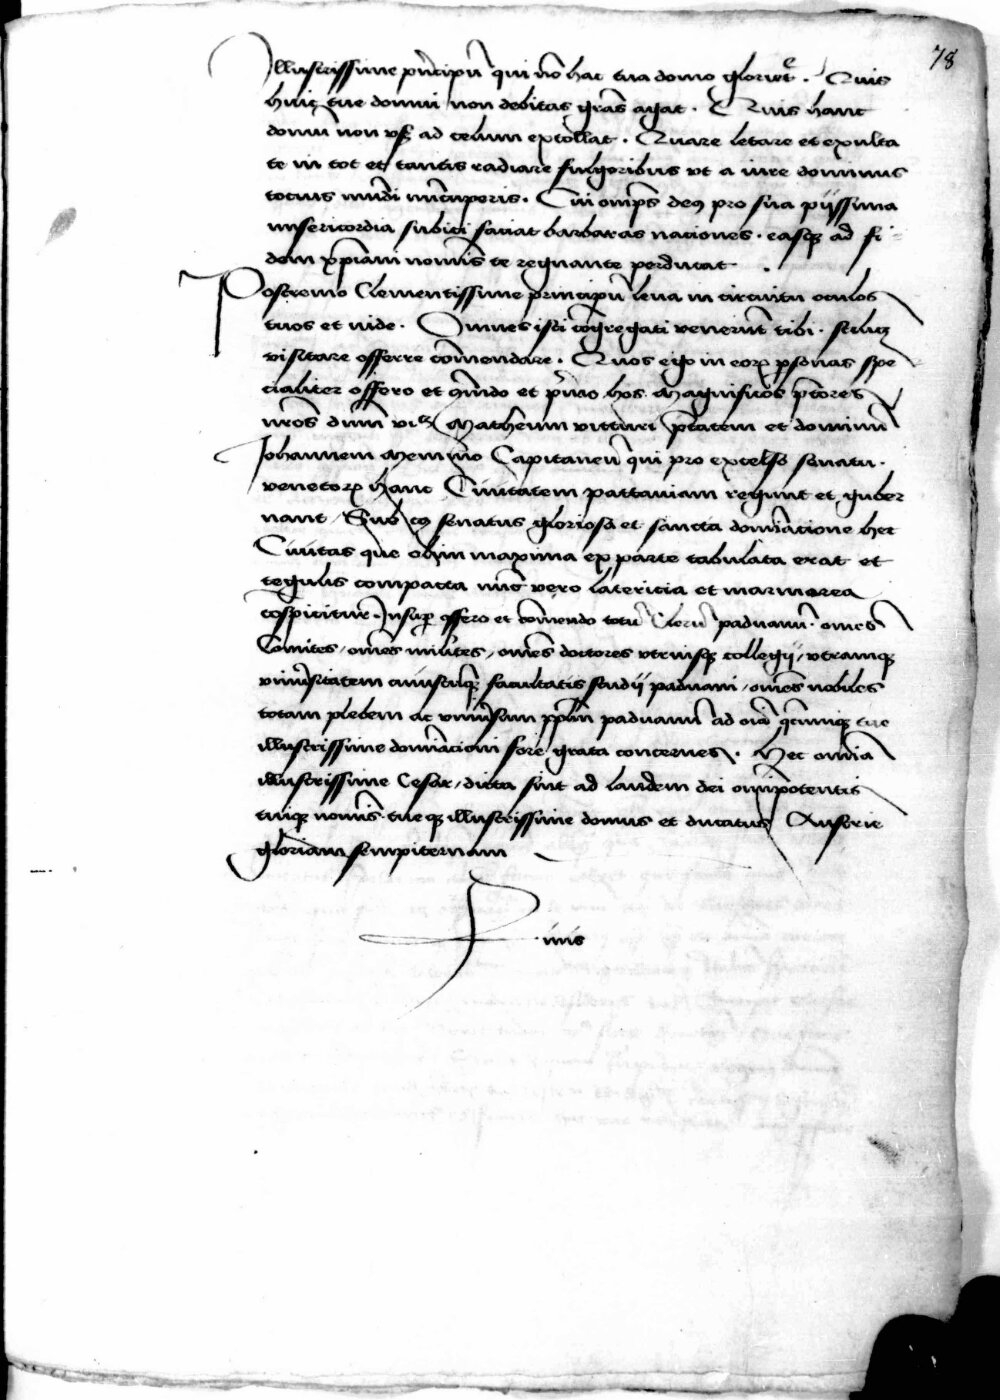 78
Illustrissime prīcipū qui nō hac tua domo gloriet̄. Quis
huic tue domui non debitas grās agat. Quis hanc
domū non usq̄ ad celum extollat. Quare letare et exulta
te in tot et tantis radiare fulgoribus vt a iure dominus
tocius mūdi nūcuperis. Cui omp̄s deus pro sua piissima
misericordia subici faciat barbaras nationes. easq̄ ad fi-
dem xp̄iani nomīs te regnante perducat.
Postremo Clementissime principū leua in circuitu oculos
tuos et vide. Omnes isti cōgregati venerūt tibi. scilicet
visitare offerre cōmendare. Quos ego in eorum psonas spe
cialiter offero et cōmēdo et primo hos Magnificos p̄tores
nrōs dūm Matheum victuri p̄tatem et dominū
Johannem Capitaneū qui pro excelso senatu.
venetorum hanc Ciuitatem pattauiam regunt et guber
nant. Sub cuius senatus gloriosa et sancta domīatione hec
Ciuitas que olim maxima ex parte tabulata erat et
tegulis compacta nūc vero latericia et marmorea
cōspicitur. Insuper offero et cōmendo totū Clerū paduanū. omēs
Comites, omēs milites, omēs doctores vtriusq̄ collegij, vtramq̄
vniuersitatem cuiuscūq̄ facultatis studij paduani, omēs nobiles
totam plebem ac vniuersum pp̄lm paduanū ad oīa q̄cumq̄ tue
illustrissime domīacioni fore grata concernes. Hec omnia
illustrissime Cesar, dicta sint ad laudem dei omīpotentis
tuiq̄ nomīs. tueq̄ illustrissime domus et ducatus Austrie
gloriam sempiternam
Finis